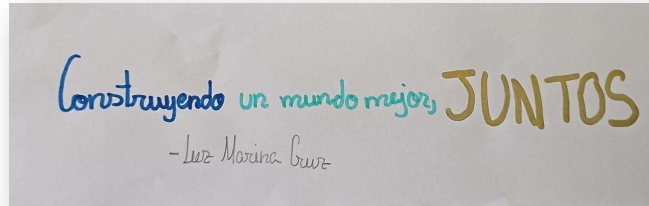 Construyendo un mundo mejor, JUNTOS
-Luz Marina Cruz